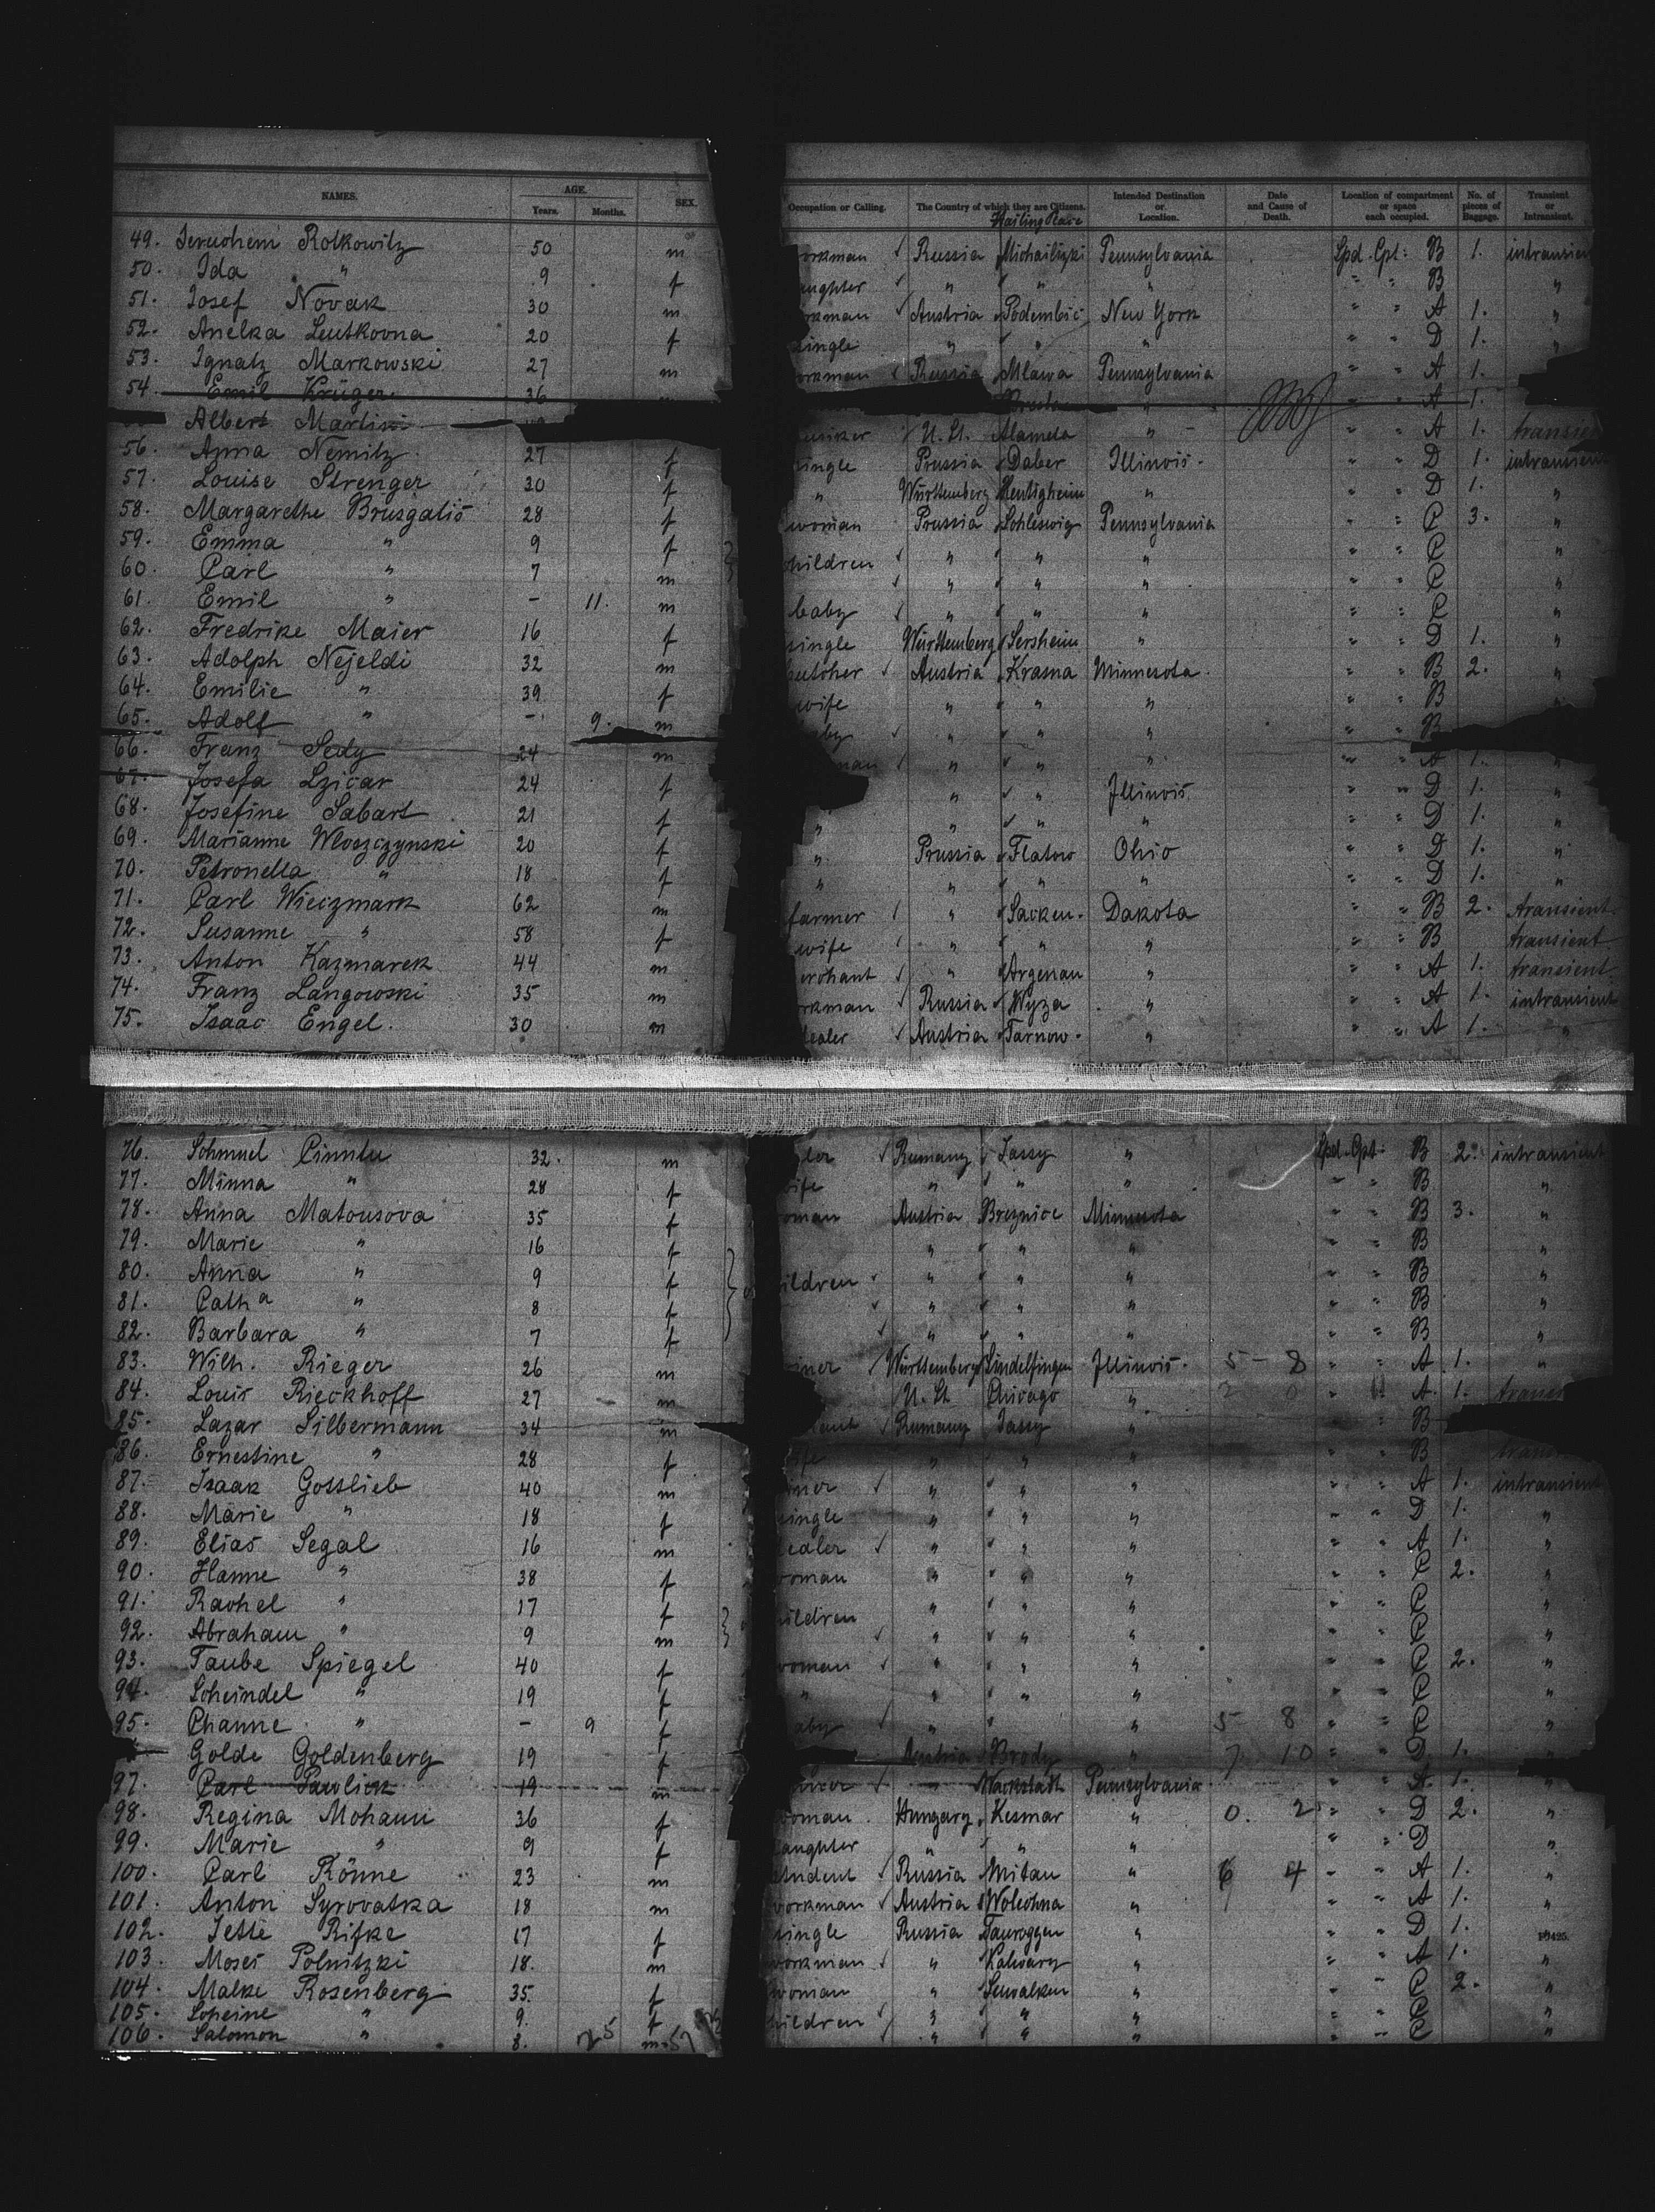 NAMES. AGE. Years. Months. SEX. Occupation or Calling. The Country of which they are Citizens. Hailing Place Intended Destination or Location. Date and Cause of Death. Location of compartment or space each occupied. No. of pieces of Baggage. Transient or Intransient.
49. Rolkowitz 50 m orkman Russia Pennsylvania Spd. Cpt: B 1. intransien
50. Ida " 9 f aughter " " " " " B "
51. Josef Novak 30 m rkman Austria New York " " A 1. "
52. Anelka 20 f ingle " " " " " D 1. "
53. Ignatz Markowski 27 m orkman Russia Mlawa Pennsylvania " " A 1.
54. Emil Krüger 36 " " A 1.
Albert Martini U. St. Alameda " " " A 1. transie
56. Anna Nemitz 27 f ingle Prussia Daber Illinois " " D 1. intransien
57. Louise Strenger 30 f " Württemberg " " " D 1. "
58. Margarethe Brusgatis 28 f woman Prussia Schleswig Pennsylvania " " C 3. "
59. Emma " 9 f children " " " " " C "
60. Carl " 7 m " " " " " C "
61. Emil " - 11. m baby " " " " " C "
62. Fredrike Maier 16 f single Württemberg Sersheim " " " D 1. "
63. Adolph Nejeldi 32 m utcher Austria Krasna Minnesota " " B 2. "
64. Emilie " 39 f wife " " " " " B "
65. Adolf " - 9. m aby " " " " " B
66. Franz Sedy 24 m man " " " " " A 1. "
67. Josefa Lzicar 24 f " " Illinois " " D 1. "
68. Josefine Sabart 21 f " " " " " " D 1. "
69. Marianne Wloszczynski 20 f " Prussia Flatow Ohio " " D 1. "
70. Petronella " 18 f " " " " " " D 1. "
71. Carl Wieczmark 62 m farmer " Sacken. Dakota " " B 2. transient
72. Susanne " 58 f wife " " " " " B transient
73. Anton Kazmarek 44 m erchant " Argenau " " " A 1. transient
74. Franz Langowski 35 m rkman Russia Wyza " " " A 1. intransient
75. Isaac Engel. 30 m ealer Austria Tarnow. " " " A 1. "
76. Schmuel 32. m ler Rumany Jassy " Spd. Cpt: B 2. intransient
77. Minna " 28 f ife " " " " " B "
78. Anna Matousova 35 f oman Austria Breznice Minnesota " " B 3. "
79. Marie " 16 f " " " " " B "
80. Anna " 9 f ildren " " " " " B "
81. Catha " 8 f " " " " " B "
82. Barbara " 7 f " " " " " B "
83. Wilh. Rieger 26 m Württemberg Sindelfingen Illinois. 5 - 8 " " A 1. "
84. Louis Rieckhoff 27 m U. St. Chicago " 2 0 " A. 1. transi
85. Lazar Silbermann 34 m Rumany Jassy " B
86. Ernestine " 28 f ife " " " " " B trans
87. Isaak Gottlieb 40 m " " " " " A 1. intransient
88. Marie " 18 f single " " " " " D 1. "
89. Elias Segal 16 m ealer " " " " " A 1. "
90. Hanne " 38 f oman " " " " " C 2. "
91. Rachel " 17 f ildren " " " " " C "
92. Abraham " 9 m " " " " " C "
93. Taube Spiegel 40 f woman " " " " " C 2. "
94. Scheindel " 19 f " " " " " " C "
95. Channe " - 9 f aby " " " 5 8 " " C "
Golde Goldenberg 19 f Austria Brody " 7 10 " " D 1. "
97. Carl Pawlick 19 m " Pennsylvania " " A 1. "
98. Regina Mohann 36 f woman Hungary Kesmar " 0. 2 " " D 2. "
99. Marie " 9 f aughter " " " " " D "
100. Carl Rönne 23 m student Russia Mitau " 6 4 " " A 1. "
101. Anton Syrovatka 18 m workman Austria " " " A 1. "
102. Jette Rifke 17 f single Russia Tauroggen " " " D 1. "
103. Moses Polnitzki 18. m workman " Kalvary " " " A 1. "
104. Malke Rosenberg 35. f woman " Suwalken " " " C 2. "
105. Scheine " 9. f hildren " " " " " C "
106. Salomon " 8. 25 m 57 " " " " " C "